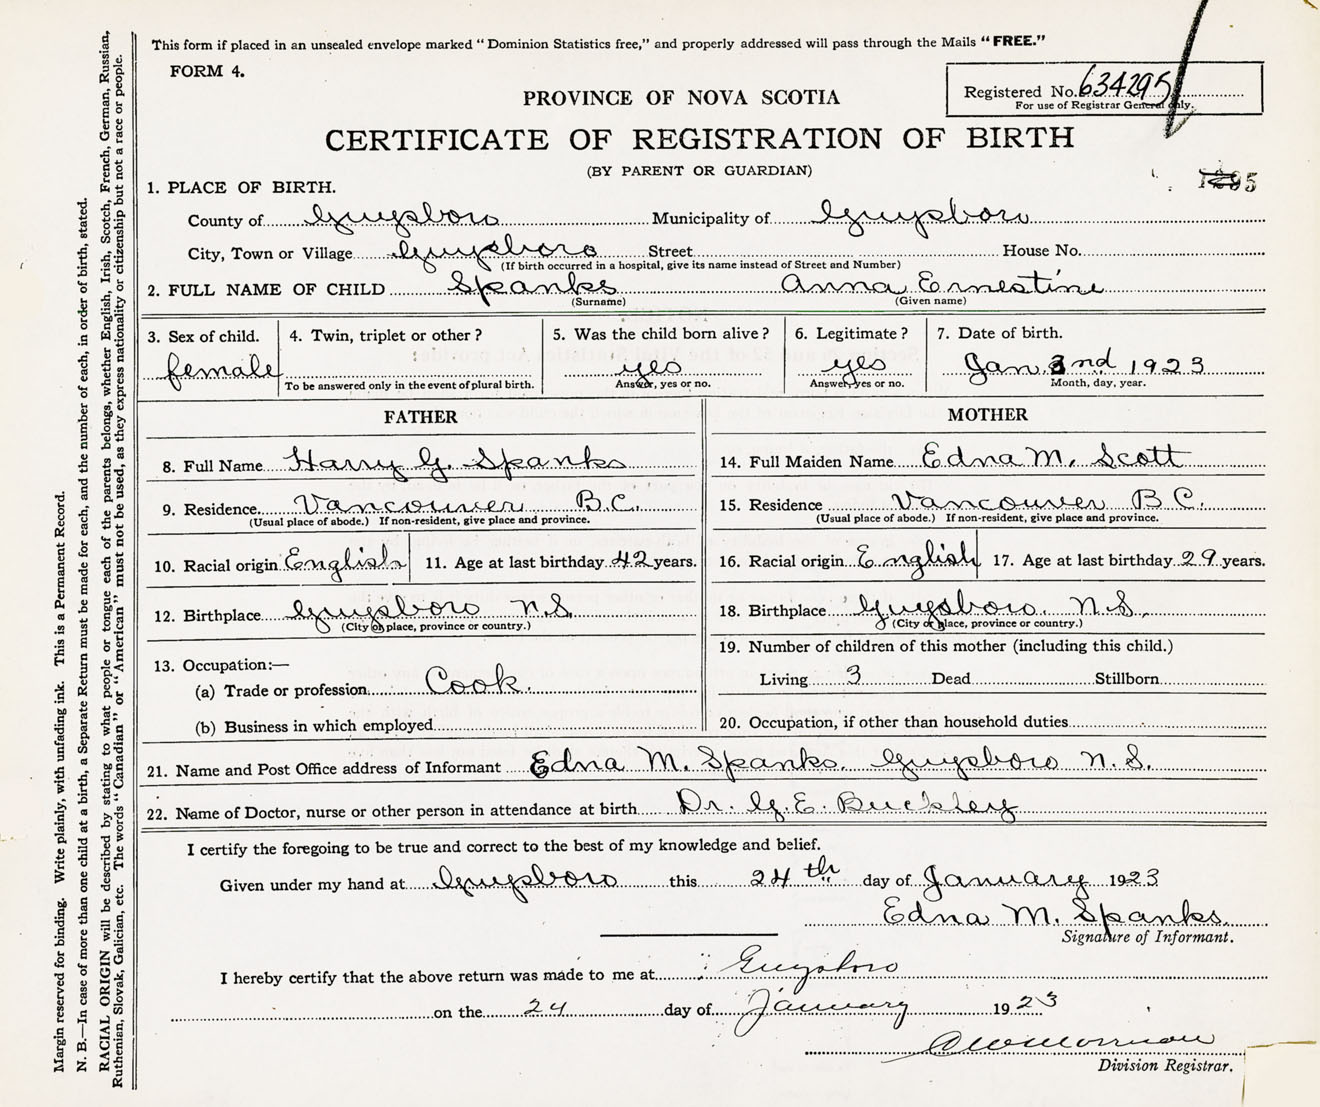 This form if placed in an unsealed envelope marked "Dominion Statistics free," and properly addressed will pass through the Mails "FREE."
FORM 4.
Registered No. 634295
For use of Registrar General only.
PROVINCE OF NOVA SCOTIA
CERTIFICATE OF REGISTRATION OF BIRTH
(BY PARENT OR GUARDIAN)
1295
1. PLACE OF BIRTH.
County of Guysboro Municipality of Guysboro
City, Town or Village Guysboro Street House No.
(If birth occurred in a hospital, give its name instead of Street and Number)
2. FULL NAME OF CHILD Spanks Anna Ernestine
(Surname) (Given name)
3. Sex of child. 4. Twin, triplet or other? 5. Was the child born alive? 6. Legitimate? 7. Date of birth.
female yes yes Jan. nd 1923
To be answered only in the event of plural birth. Answer, yes or no. Answer, yes or no. Month, day, year.
FATHER MOTHER
8. Full Name Harry G. Spanks 14. Full Maiden Name Edna M. Scott
9. Residence Vancouver B.C. 15. Residence Vancouver B.C.
(Usual place of abode.) If non-resident, give place and province. (Usual place of abode.) If non-resident, give place and province.
10. Racial origin English 11. Age at last birthday 42 years. 16. Racial origin English 17. Age at last birthday 29 years.
12. Birthplace Guysboro N.S. 18. Birthplace Guysboro. N.S.
(City or place, province or country.) (City or place, province or country.)
13. Occupation:— 19. Number of children of this mother (including this child.)
(a) Trade or profession Cook. Living 3 Dead Stillborn
(b) Business in which employed 20. Occupation, if other than household duties
21. Name and Post Office address of Informant Edna M. Spanks. Guysboro N.S.
22. Name of Doctor, nurse or other person in attendance at birth Dr. G. E. Buckley
I certify the foregoing to be true and correct to the best of my knowledge and belief.
Given under my hand at Guysboro this 24th day of January 1923
Edna M. Spanks.
Signature of Informant.
I hereby certify that the above return was made to me at Guysboro
on the 24 day of January 1923
Division Registrar.
Margin reserved for binding. Write plainly, with unfading ink. This is a Permanent Record.
N. B.—In case of more than one child at a birth, a Separate Return must be made for each, and the number of each, in order of birth, stated.
RACIAL ORIGIN will be described by stating to what people or tongue each of the parents belongs, whether English, Irish, Scotch, French, German, Russian,
Ruthenian, Slovak, Galician, etc. The words "Canadian" or "American" must not be used, as they express nationality or citizenship but not a race or people.